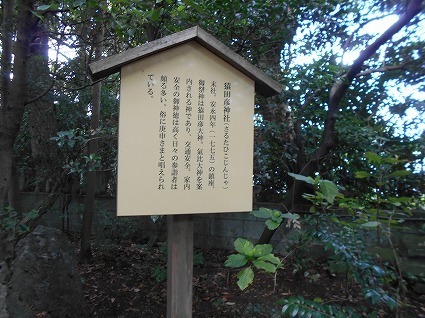 猿田彦神社（さるたひこじんじゃ）
末社、安永四年（一七七五）の鎮座。
御祭神は猿田彦大神。氣比大神を案
内される神であり、交通安全、家内
安全の御神徳は高く日々の参詣者は
頗る多い。俗に庚申さまと唱えられ
ている。